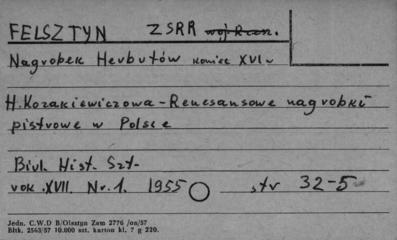 FELSZTYN ZSRR woj. Rzesz.
Nagrobek Herburtów koniec XVI w
H. Kozakiewiczowa - Renesansowe nagrobki
piętrowe w Polsce
Biul. Hist. Szt.
rok XVII. Nr. 1. 1955 str 32-5
Jedn. C.W.D B/Olsztyn Zam 2776 /on/57
Bltk. 2563/57 10.000 szt. karton kl. 7 g 220.